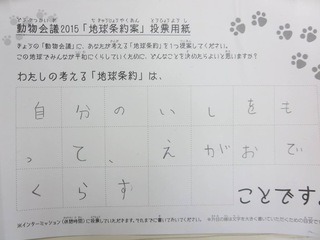 動物会議2015「地球条約案」投票用紙
きょうの「動物会議」に、あなたが考える「地球条約」を1つ提案してください。
この地球でみんなが平和にくらしていくために、どんなことを決めたらよいと思いますか?
わたしの考える「地球条約」は、
自分のいしをも
って、えがおで
くらす
ことです。